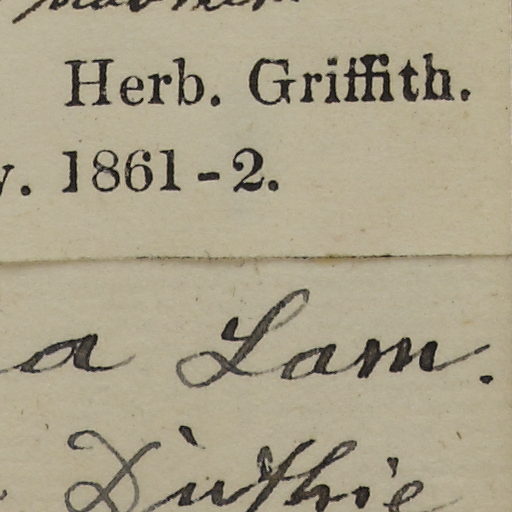 Herb. Griffith.
. 1861-2.
a Lam.
Duthie